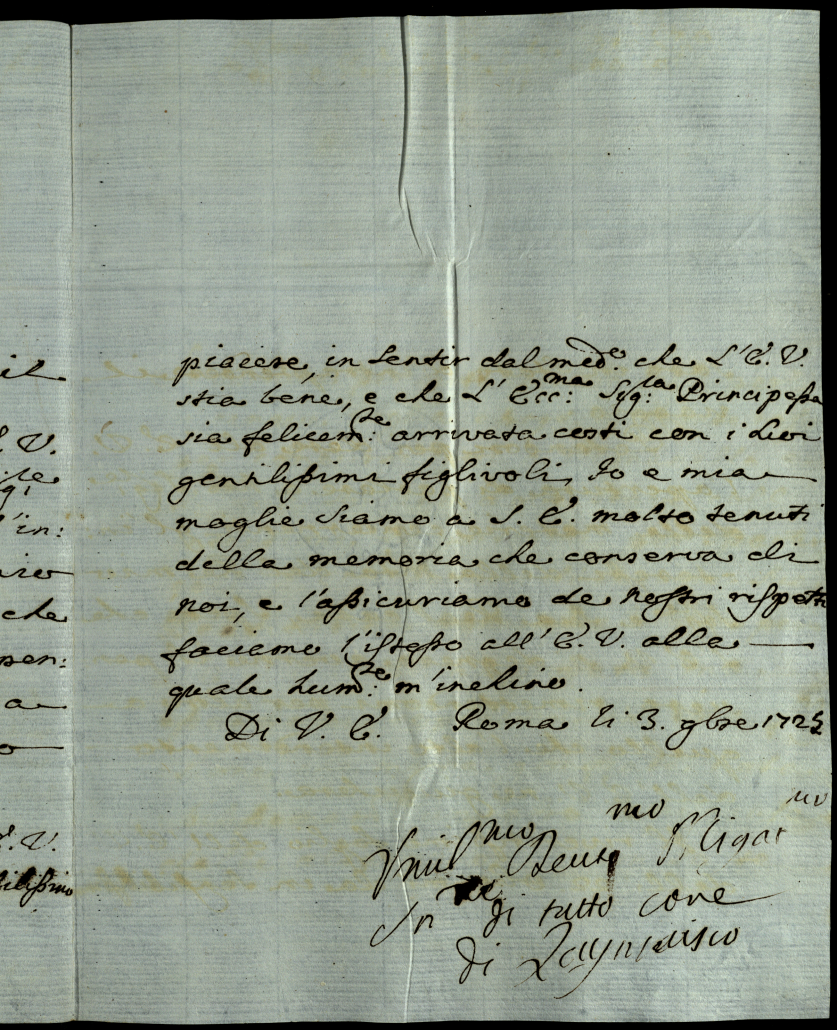 il
piacere, in sentir dal med.º che L'E. V.
stia bene, e che L'Ecc:ma Sig:ra Principessa
V.
sia felicem:te arrivata costì con i suoi
gentilissimi figlivoli, Io e mia
'in:
moglie siamo a S. E. molto tenuti
della memoria che conserva di
che
noi, e l'assicuriamo de nostri rispetti
faciamo l'istesso all'E. V. alla
a
quale hum:te m'inchino.
Di V. E. Roma li 3. 9bre 1725
V.
Vmil.mo Deuot.mo Obligat.mo
di tutto core
di